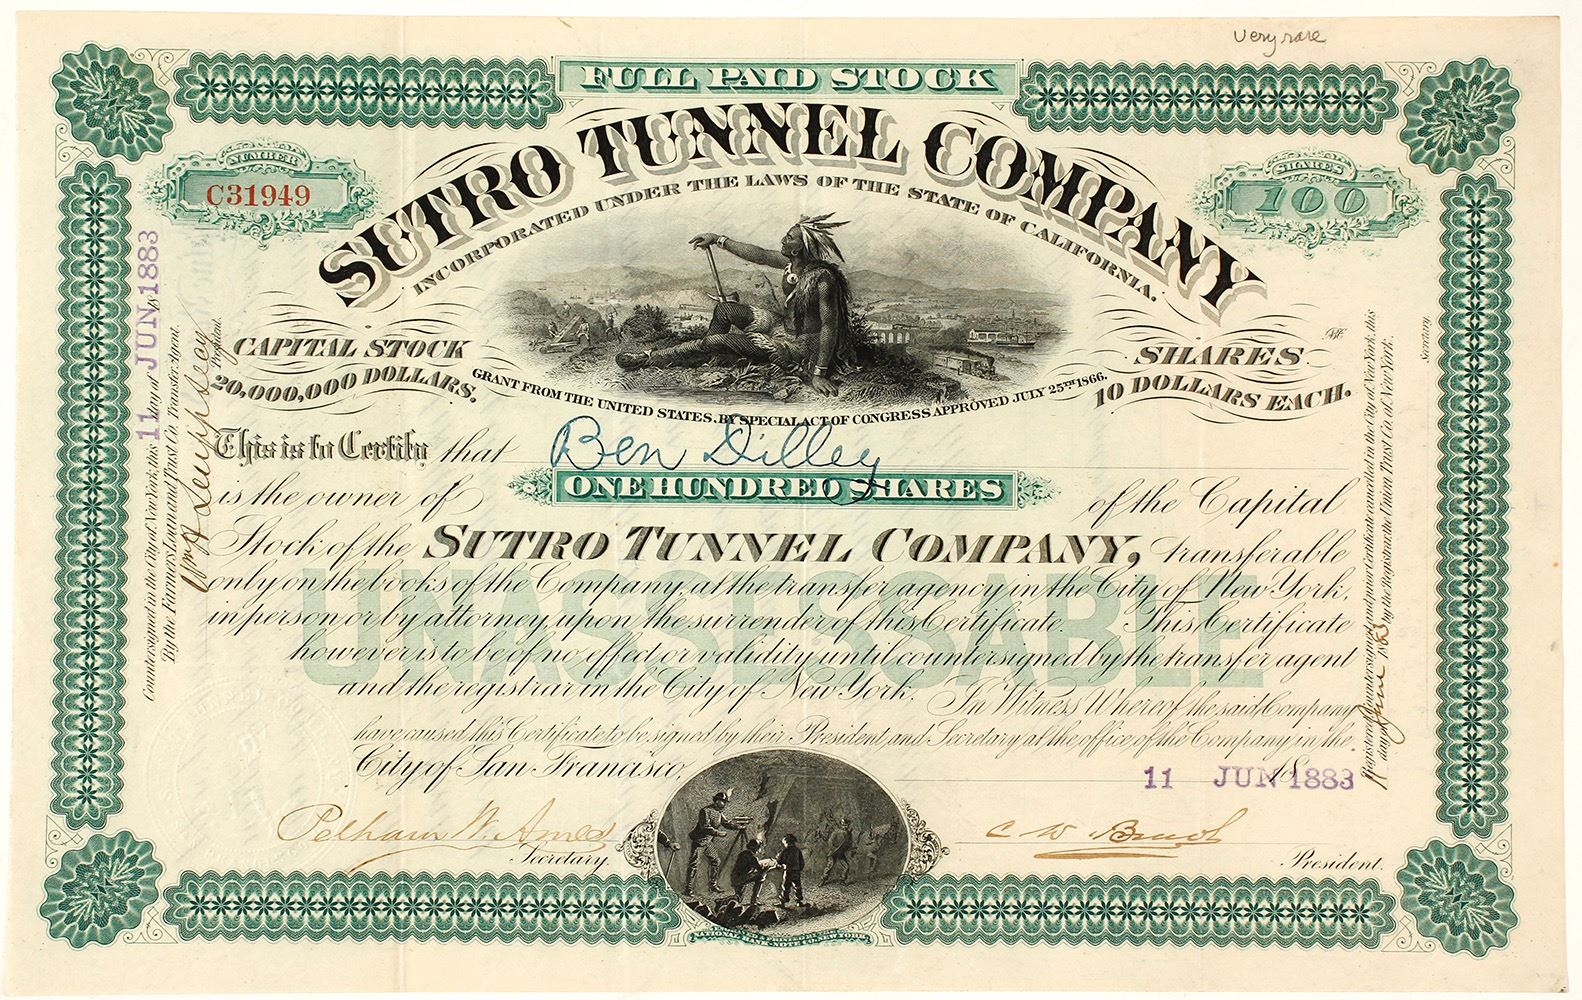 very rare
FULL PAID STOCK
SUTRO TUNNEL COMPANY
INCORPORATED UNDER THE LAWS OF THE STATE OF CALIFORNIA.
NUMBER
C31949
SHARES
100
CAPITAL STOCK
20,000,000 DOLLARS.
SHARES
10 DOLLARS EACH.
GRANT FROM THE UNITED STATES, BY SPECIAL ACT OF CONGRESS APPROVED JULY 25TH 1866.
This is to Certify that Ben Dilley
is the owner of ONE HUNDRED SHARES of the Capital
Stock of the SUTRO TUNNEL COMPANY, transferable
only on the books of the Company, at the transfer agency in the City of New York,
in person or by attorney, upon the surrender of this Certificate. This Certificate
however is to be of no effect or validity until countersigned by the transfer agent
and the registrar in the City of New York. In Witness Whereof the said Company
have caused this Certificate to be signed by their President and Secretary at the office of the Company in the
City of San Francisco, 11 JUN 1883
UNASSESSABLE
Pelham W. Ames
Secretary.
President.
Countersigned in the City of New York, this 11 day of JUN 1883
By the Farmers Loan and Trust Co. Transfer Agent.
President.
Registered, countersigned, and prior Certificate cancelled in the City of New York, this
day June 1883 by the Registrar, the Union Trust Co. of New York.
Secretary.